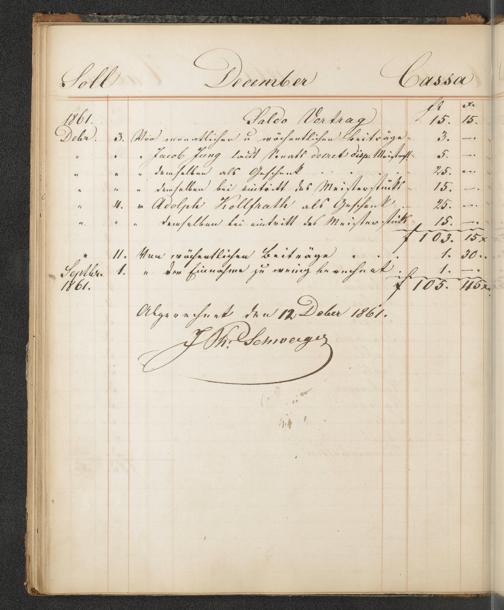 Soll December Cassa
fl x.
1861. Saldo Vortrag 15. 15.
Debr. 3. Von monatlichen u wöchentlichen Beiträge 3. —
" " " Jacob Jung laut Senats decret disp. Meisterst. 5. —
" " " demselben als Geschenk 25. —
" " " demselben bei eintritt des Meisterstücks 15. —
" 4. " Adolph Kollfrath als Geschenk 25. —
" " " demselben bei eintritt des Meisterstücks 15. —
f 103. 15x
" 11. Von wöchentlichen Beiträge 1. 30.
Septbr. 1. " der Einnahme zu wenig berechnet 1. —
1861. f 105. 45x.
Abgerechnet den 12 Deber 1861.
J Schweiger